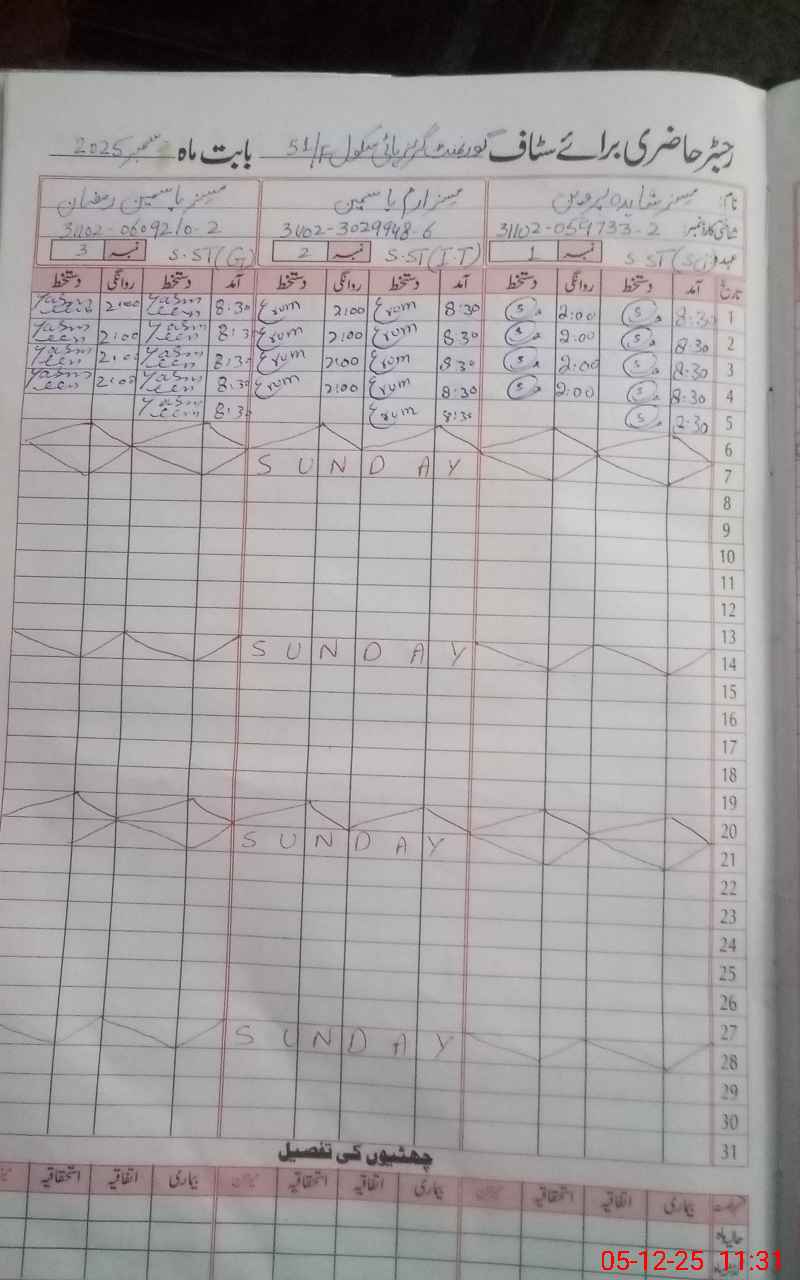 رجسٹر حاضری برائے سٹاف گورنمنٹ گرلز ہائی سکول 51/F بابت ماہ دسمبر 2025
نام: مسز شاہدہ پروین مسز ارم یاسمین مسز یاسمین رمضان
شناختی کارڈ نمبر: 31102-059733-2 31102-3029948-6 31102-0609210-2
عہدہ S-ST(Sc) نمبر 1 S-ST(I.T) نمبر 2 S-ST(G) نمبر 3
تاریخ آمد دستخط روانگی دستخط آمد دستخط روانگی دستخط آمد دستخط روانگی دستخط
1 8:30 S 2:00 S 8:30 Erum 2:00 Erum 8:30 Yasmeen 2:00 Yasmeen
2 8:30 S 2:00 S 8:30 Erum 2:00 Erum 8:30 Yasmeen 2:00 Yasmeen
3 8:30 S 2:00 S 8:30 Erum 2:00 Erum 8:30 Yasmeen 2:00 Yasmeen
4 8:30 S 2:00 S 8:30 Erum 2:00 Erum 8:30 Yasmeen 2:00 Yasmeen
5 8:30 S 8:30 Erum 8:30 Yasmeen
6
7 SUNDAY
8
9
10
11
12
13
14 SUNDAY
15
16
17
18
19
20
21 SUNDAY
22
23
24
25
26
27
28 SUNDAY
29
30
31
چھٹیوں کی تفصیل
بیماری اتفاقیہ استحقاقیہ میزان بیماری اتفاقیہ استحقاقیہ میزان بیماری اتفاقیہ استحقاقیہ
حالیہ ماہ
05-12-25 11:31